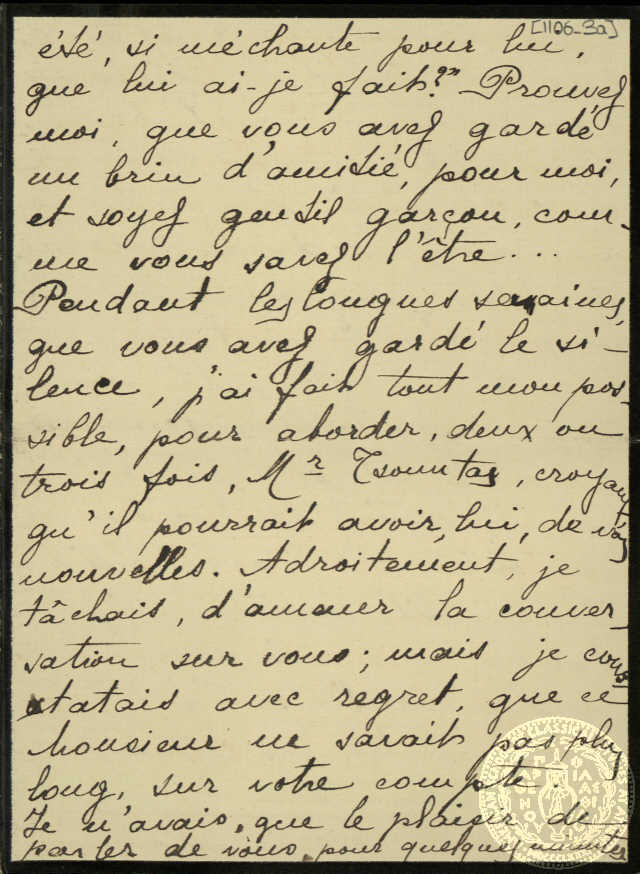 [1106-3a]
été, si méchante pour lui,
que lui ai-je fait?" Prouvez
moi, que vous avez gardé
un brin d'amitié, pour moi,
et soyez gentil garçon, com-
me vous savez l'être...
Pendant les longues semaines,
que vous avez gardé le si-
lence, j'ai fait tout mon pos-
sible, pour aborder, deux ou
trois fois, Mr Tsountas, croyant
qu'il pourrait avoir, lui, de vos
nouvelles. Adroitement, je
tâchais, d'amener la conver
sation sur vous; mais je cons
tatais avec regret, que ce
Monsieur ne savait pas plus
long, sur votre compte.
Je n'avais, que le plaisir de
parler de vous, pour quelques minutes